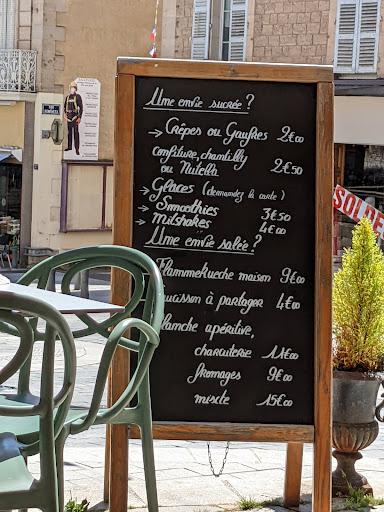 Une envie sucrée ?
→ Crêpes ou Gaufres 2€00
Confiture, chantilly
ou Nutella 2€50
→ Glaces (demandez la carte)
→ Smoothies 3€50
→ Milshakes 4€00
Une envie salée ?
Flammmekueche maison 9€00
saucisson à partager 4€00
Planche apéritive,
charcuterie 11€00
fromages 9€00
mixte 15€00
SOLDE